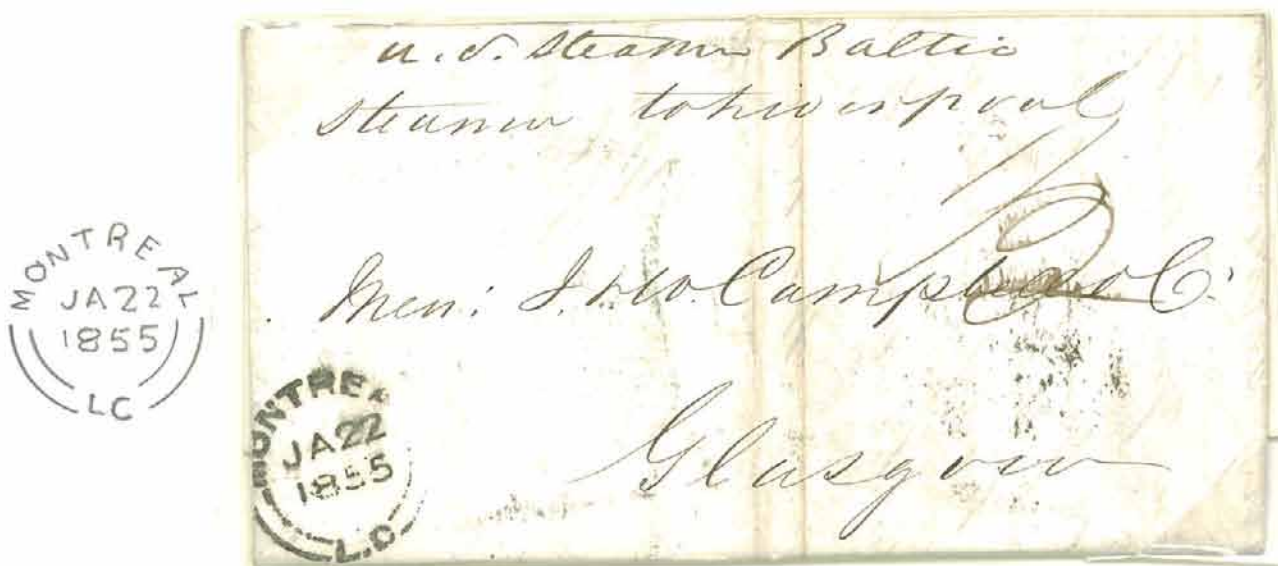 MONTREAL
JA 22
1855
LC
u. S. Steamer Baltic
Steamer to Liverpool
1/2
Mess: J. & W. Campbell & Co.
Glasgow
MONTREAL
JA 22
1855
L.C